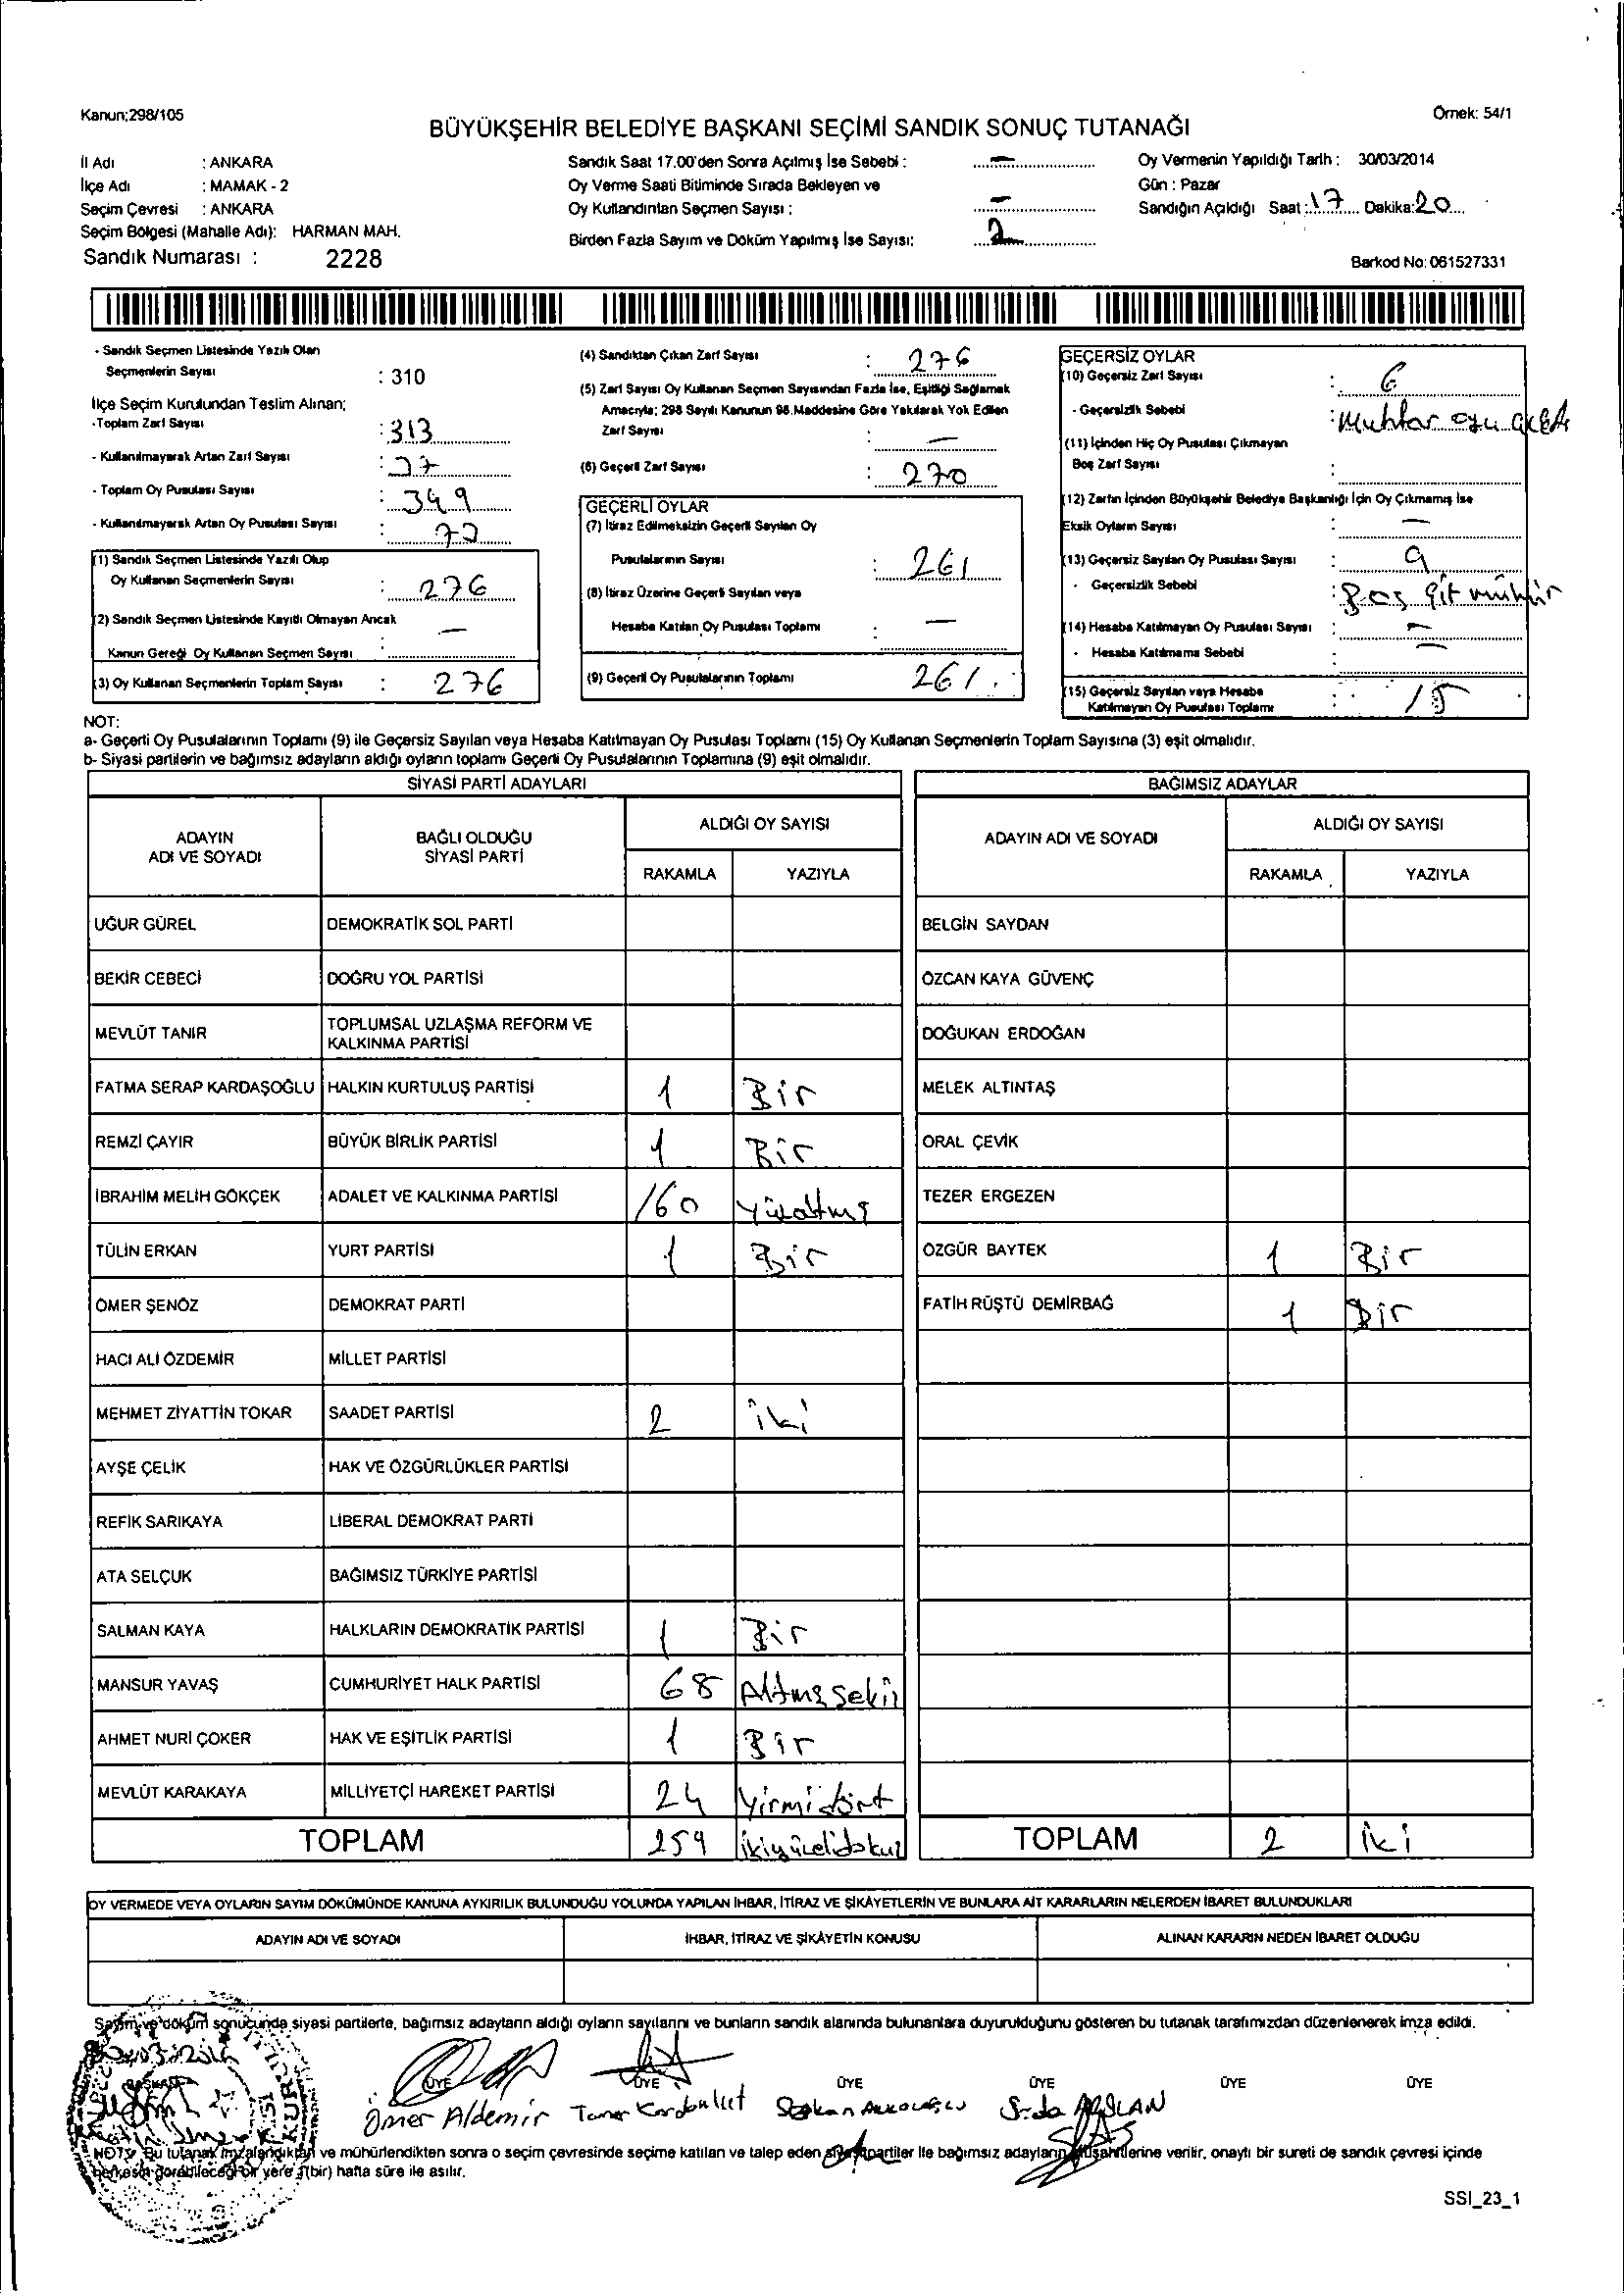 Kanun;298/105
Örnek: 54/1
BÜYÜKŞEHİR BELEDİYE BAŞKANI SEÇİMİ SANDIK SONUÇ TUTANAĞI
İl Adı : ANKARA
İlçe Adı : MAMAK - 2
Seçim Çevresi : ANKARA
Seçim Bölgesi (Mahalle Adı): HARMAN MAH.
Sandık Numarası : 2228
Sandık Saat 17.00'den Sonra Açılmış İse Sebebi : –
Oy Verme Saati Bitiminde Sırada Bekleyen ve
Oy Kullandırılan Seçmen Sayısı : –
Birden Fazla Sayım ve Döküm Yapılmış İse Sayısı: 2
Oy Vermenin Yapıldığı Tarih : 30/03/2014
Gün : Pazar
Sandığın Açıldığı Saat : 17 Dakika: 20
Barkod No: 061527331
- Sandık Seçmen Listesinde Yazılı Olan
Seçmenlerin Sayısı : 310
İlçe Seçim Kurulundan Teslim Alınan;
-Toplam Zarf Sayısı : 313
- Kullanılmayarak Artan Zarf Sayısı :
- Toplam Oy Pusulası Sayısı : 349
- Kullanılmayarak Artan Oy Pusulası Sayısı :
(1) Sandık Seçmen Listesinde Yazılı Olup
Oy Kullanan Seçmenlerin Sayısı : 276
(2) Sandık Seçmen Listesinde Kayıtlı Olmayan Ancak
Kanun Gereği Oy Kullanan Seçmen Sayısı : –
(3) Oy Kullanan Seçmenlerin Toplam Sayısı : 276
(4) Sandıktan Çıkan Zarf Sayısı : 276
(5) Zarf Sayısı Oy Kullanan Seçmen Sayısından Fazla İse, Eşitliği Sağlamak
Amacıyla; 298 Sayılı Kanunun 98.Maddesine Göre Yakılarak Yok Edilen
Zarf Sayısı : –
(6) Geçerli Zarf Sayısı : 270
GEÇERLİ OYLAR
(7) İtiraz Edilmeksizin Geçerli Sayılan Oy
Pusulalarının Sayısı : 261
(8) İtiraz Üzerine Geçerli Sayılan veya
Hesaba Katılan Oy Pusulası Toplamı : –
(9) Geçerli Oy Pusulalarının Toplamı 261
GEÇERSİZ OYLAR
(10) Geçersiz Zarf Sayısı : 6
- Geçersizlik Sebebi : Muhtar oyu
(11) İçinden Hiç Oy Pusulası Çıkmayan
Boş Zarf Sayısı :
(12) Zarfın İçinden Büyükşehir Belediye Başkanlığı İçin Oy Çıkmamış İse
Eksik Oyların Sayısı : –
(13) Geçersiz Sayılan Oy Pusulası Sayısı : 9
- Geçersizlik Sebebi : Boş çift mühür
(14) Hesaba Katılmayan Oy Pusulası Sayısı : –
- Hesaba Katılmama Sebebi : –
(15) Geçersiz Sayılan veya Hesaba
Katılmayan Oy Pusulası Toplamı : 15
NOT:
a- Geçerli Oy Pusulalarının Toplamı (9) ile Geçersiz Sayılan veya Hesaba Katılmayan Oy Pusulası Toplamı (15) Oy Kullanan Seçmenlerin Toplam Sayısına (3) eşit olmalıdır.
b- Siyasi partilerin ve bağımsız adayların aldığı oyların toplamı Geçerli Oy Pusulalarının Toplamına (9) eşit olmalıdır.
SİYASİ PARTİ ADAYLARI
ADAYIN ADI VE SOYADI
BAĞLI OLDUĞU SİYASİ PARTİ
ALDIĞI OY SAYISI
RAKAMLA YAZIYLA
UĞUR GÜREL DEMOKRATİK SOL PARTİ
BEKİR CEBECİ DOĞRU YOL PARTİSİ
MEVLÜT TANIR TOPLUMSAL UZLAŞMA REFORM VE
KALKINMA PARTİSİ
FATMA SERAP KARDAŞOĞLU HALKIN KURTULUŞ PARTİSİ 1 Bir
REMZİ ÇAYIR BÜYÜK BİRLİK PARTİSİ 1 Bir
İBRAHİM MELİH GÖKÇEK ADALET VE KALKINMA PARTİSİ 160 Yüzaltmış
TÜLİN ERKAN YURT PARTİSİ 1 Bir
ÖMER ŞENÖZ DEMOKRAT PARTİ
HACI ALİ ÖZDEMİR MİLLET PARTİSİ
MEHMET ZİYATTİN TOKAR SAADET PARTİSİ 2 iki
AYŞE ÇELİK HAK VE ÖZGÜRLÜKLER PARTİSİ
REFİK SARIKAYA LİBERAL DEMOKRAT PARTİ
ATA SELÇUK BAĞIMSIZ TÜRKİYE PARTİSİ
SALMAN KAYA HALKLARIN DEMOKRATİK PARTİSİ 1 Bir
MANSUR YAVAŞ CUMHURİYET HALK PARTİSİ 68 Altmışsekiz
AHMET NURİ ÇOKER HAK VE EŞİTLİK PARTİSİ 1 Bir
MEVLÜT KARAKAYA MİLLİYETÇİ HAREKET PARTİSİ 24 Yirmidört
TOPLAM 259 ikiyüzellidokuz
BAĞIMSIZ ADAYLAR
ADAYIN ADI VE SOYADI
ALDIĞI OY SAYISI
RAKAMLA YAZIYLA
BELGİN SAYDAN
ÖZCAN KAYA GÜVENÇ
DOĞUKAN ERDOĞAN
MELEK ALTINTAŞ
ORAL ÇEVİK
TEZER ERGEZEN
ÖZGÜR BAYTEK 1 Bir
FATİH RÜŞTÜ DEMİRBAĞ 1 Bir
TOPLAM 2 iki
OY VERMEDE VEYA OYLARIN SAYIM DÖKÜMÜNDE KANUNA AYKIRILIK BULUNDUĞU YOLUNDA YAPILAN İHBAR, İTİRAZ VE ŞİKÂYETLERİN VE BUNLARA AİT KARARLARIN NELERDEN İBARET BULUNDUKLARI
ADAYIN ADI VE SOYADI İHBAR, İTİRAZ VE ŞİKÂYETİN KONUSU ALINAN KARARIN NEDEN İBARET OLDUĞU
Sayım ve döküm sonucunda siyasi partilerle, bağımsız adayların aldığı oyların sayılarını ve bunların sandık alanında bulunanlara duyurulduğunu gösteren bu tutanak tarafımızdan düzenlenerek imza edildi.
BAŞKAN ÜYE ÜYE ÜYE ÜYE ÜYE ÜYE
Ömer Aldemir Taner ARSLAN
NOT: Bu tutanak imzalandıktan ve mühürlendikten sonra o seçim çevresinde seçime katılan ve talep eden siyasi partiler ile bağımsız adayların müşahitlerine verilir, onaylı bir sureti de sandık çevresi içinde
herkesin görebileceği bir yere 1(bir) hafta süre ile asılır.
SSI_23_1